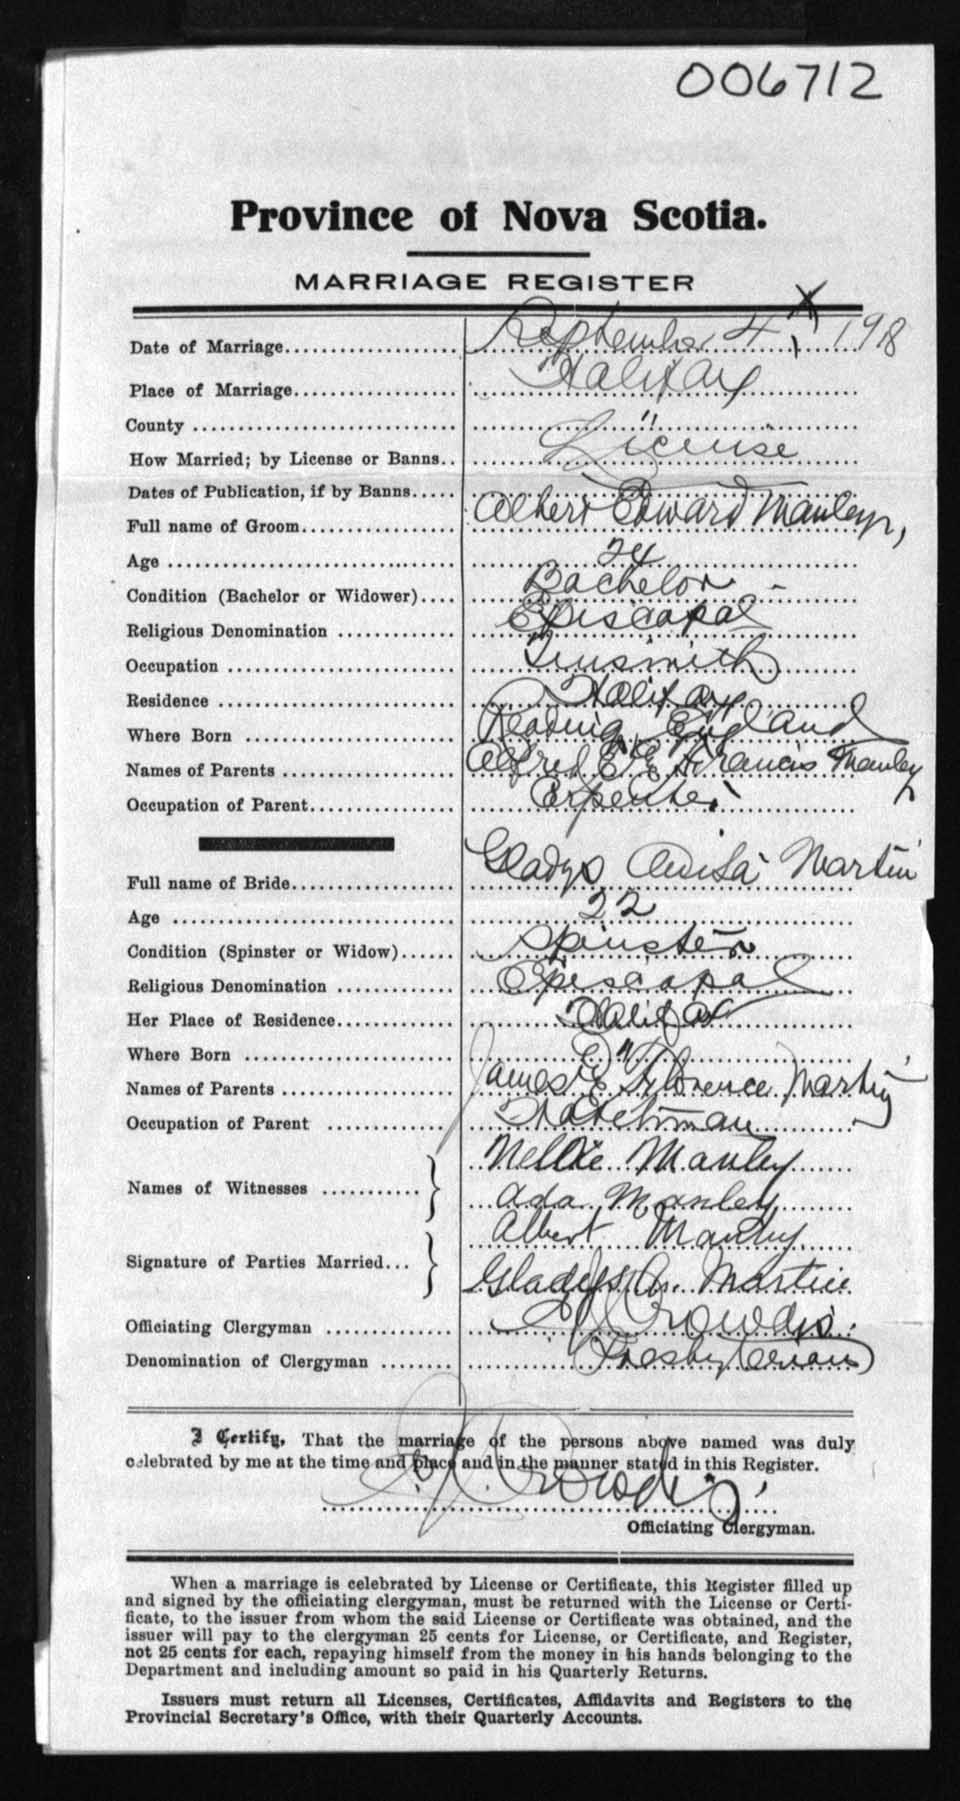 006712
Province of Nova Scotia.
MARRIAGE REGISTER
Date of Marriage September 4, 1918
Place of Marriage Halifax
County "
How Married; by License or Banns License
Dates of Publication, if by Banns
Full name of Groom Albert Edward Manley,
Age 24
Condition (Bachelor or Widower) Bachelor
Religious Denomination Episcopal
Occupation Tinsmith
Residence Halifax
Where Born Reading, England
Names of Parents Alfred E. & Francis Manley
Occupation of Parent Carpenter
Full name of Bride Gladys Martin
Age 22
Condition (Spinster or Widow) Spinster
Religious Denomination Episcopal
Her Place of Residence Halifax
Where Born "
Names of Parents James & Florence Martin
Occupation of Parent Watchman
Names of Witnesses Nellie Manley
Ada Manley
Signature of Parties Married Albert Manley
Gladys A. Martin
Officiating Clergyman Crowdis
Denomination of Clergyman Presbyterian
I Certify, That the marriage of the persons above named was duly
celebrated by me at the time and place and in the manner stated in this Register.
Crowdis
Officiating Clergyman.
When a marriage is celebrated by License or Certificate, this Register filled up
and signed by the officiating clergyman, must be returned with the License or Certi-
ficate, to the issuer from whom the said License or Certificate was obtained, and the
issuer will pay to the clergyman 25 cents for License, or Certificate, and Register,
not 25 cents for each, repaying himself from the money in his hands belonging to the
Department and including amount so paid in his Quarterly Returns.
Issuers must return all Licenses, Certificates, Affidavits and Registers to the
Provincial Secretary's Office, with their Quarterly Accounts.